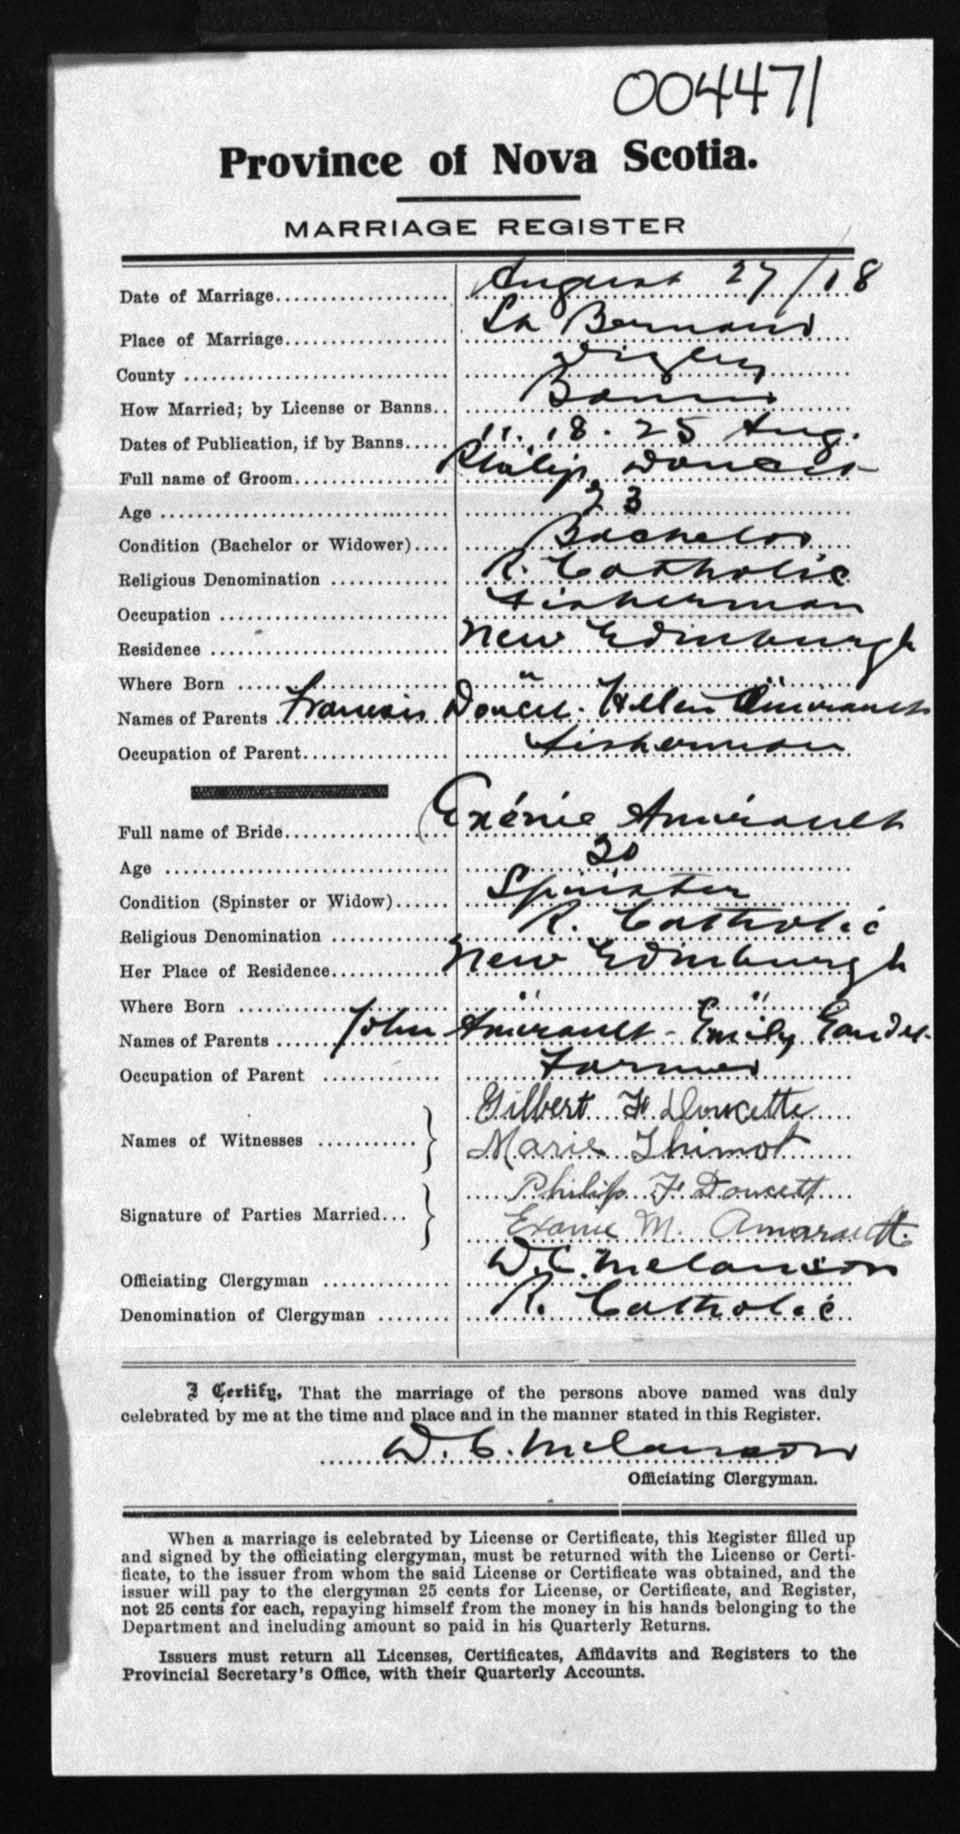 004471
Province of Nova Scotia.
MARRIAGE REGISTER
Date of Marriage August 27/18
Place of Marriage St Bernard
County Digby
How Married; by License or Banns Banns
Dates of Publication, if by Banns 11. 18. 25 Aug.
Full name of Groom Philip Doucet
Age 23
Condition (Bachelor or Widower) Bachelor
Religious Denomination R. Catholic
Occupation Fisherman
Residence New Edinburgh
Where Born " "
Names of Parents Francis Doucet. Helen Amirault
Occupation of Parent Fisherman
Full name of Bride Exénie Amirault
Age 20
Condition (Spinster or Widow) Spinster
Religious Denomination R. Catholic
Her Place of Residence New Edinburgh
Where Born " "
Names of Parents John Amirault - Emily
Occupation of Parent Farmer
Names of Witnesses Gilbert F. Doucette
Marie Thimot
Signature of Parties Married Philip F. Doucett
M. Amarault.
Officiating Clergyman D. C. Melanson
Denomination of Clergyman R. Catholic
I Certify, That the marriage of the persons above named was duly
celebrated by me at the time and place and in the manner stated in this Register.
D. C. Melanson
Officiating Clergyman.
When a marriage is celebrated by License or Certificate, this Register filled up
and signed by the officiating clergyman, must be returned with the License or Certi-
ficate, to the issuer from whom the said License or Certificate was obtained, and the
issuer will pay to the clergyman 25 cents for License, or Certificate, and Register,
not 25 cents for each, repaying himself from the money in his hands belonging to the
Department and including amount so paid in his Quarterly Returns.
Issuers must return all Licenses, Certificates, Affidavits and Registers to the
Provincial Secretary's Office, with their Quarterly Accounts.